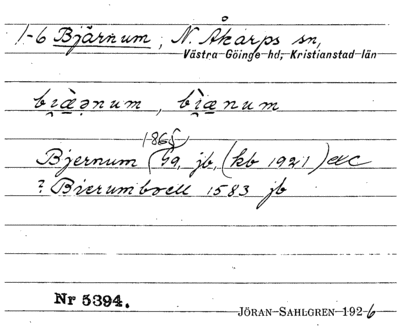 1-6 Bjärnum, N. Åkarps sn,
Västra Göinge hd, Kristianstad län
bi̯æ̀ənum, bi̯æ̀num
1865
Bjernum ( jb, (kb 1921) etc
? Bierumboell 1583 jb
Nr 5394.
JÖRAN SAHLGREN 1926